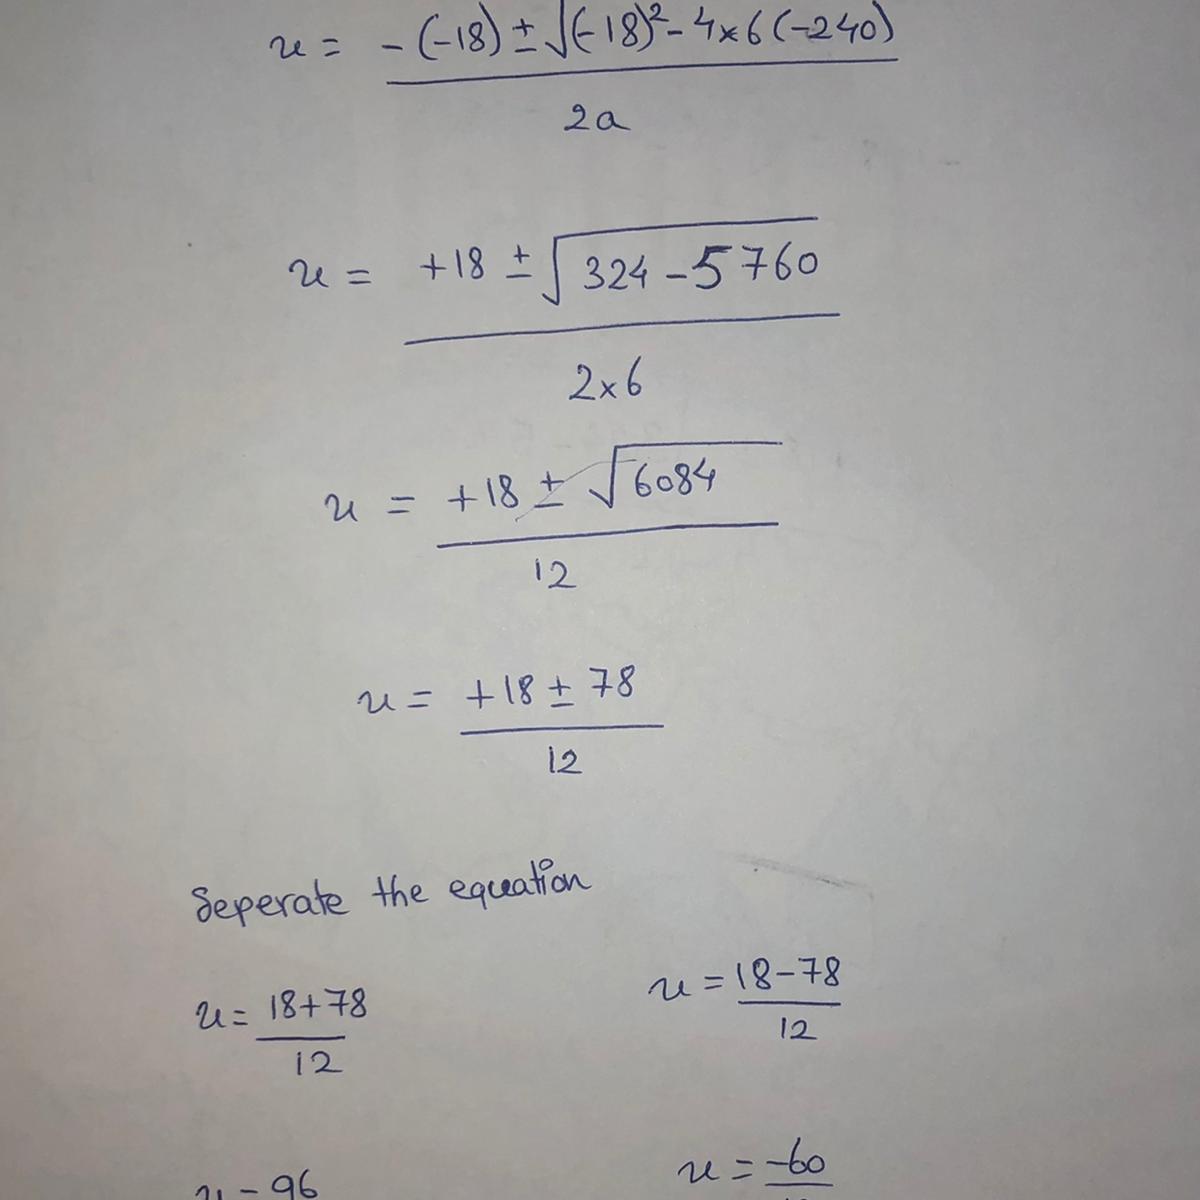 x = -(-18) ± √(-18)² - 4×6(-240)
2a
x = +18 ± √324 - 5760
2×6
x = +18 ± √6084
12
x = +18 ± 78
12
Seperate the equation
x = 18+78
12
x = 18-78
12
x = 96
x = -60